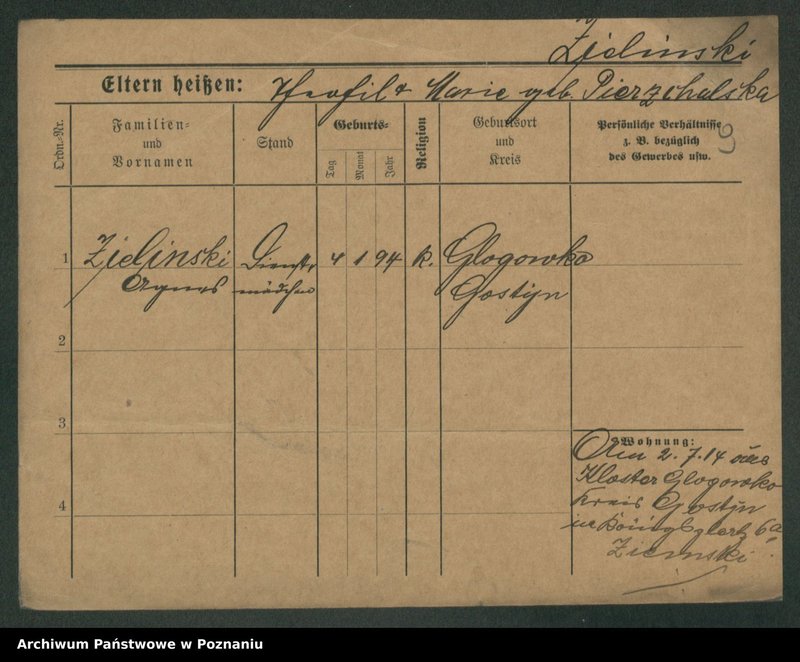 Zielinski
Eltern heißen: Theofil & Marie geb. Pierzchalska
Ordn.-Nr.
Familien-
und
Vornamen
Stand
Geburts-
Tag
Monat
Jahr
Religion
Geburtsort
und
Kreis
Persönliche Verhältnisse
z. B. bezüglich
des Gewerbes usw.
9
1 Zielinski Dienst- 4 1 94 K. Glogowko
Agnes mädchen Gostyn
2
3
4
Wohnung:
Am 2. 7. 14 aus
Kloster Glogowko
Kreis Gostyn
in Königsplatz 6a
Ziemski.
Archiwum Państwowe w Poznaniu